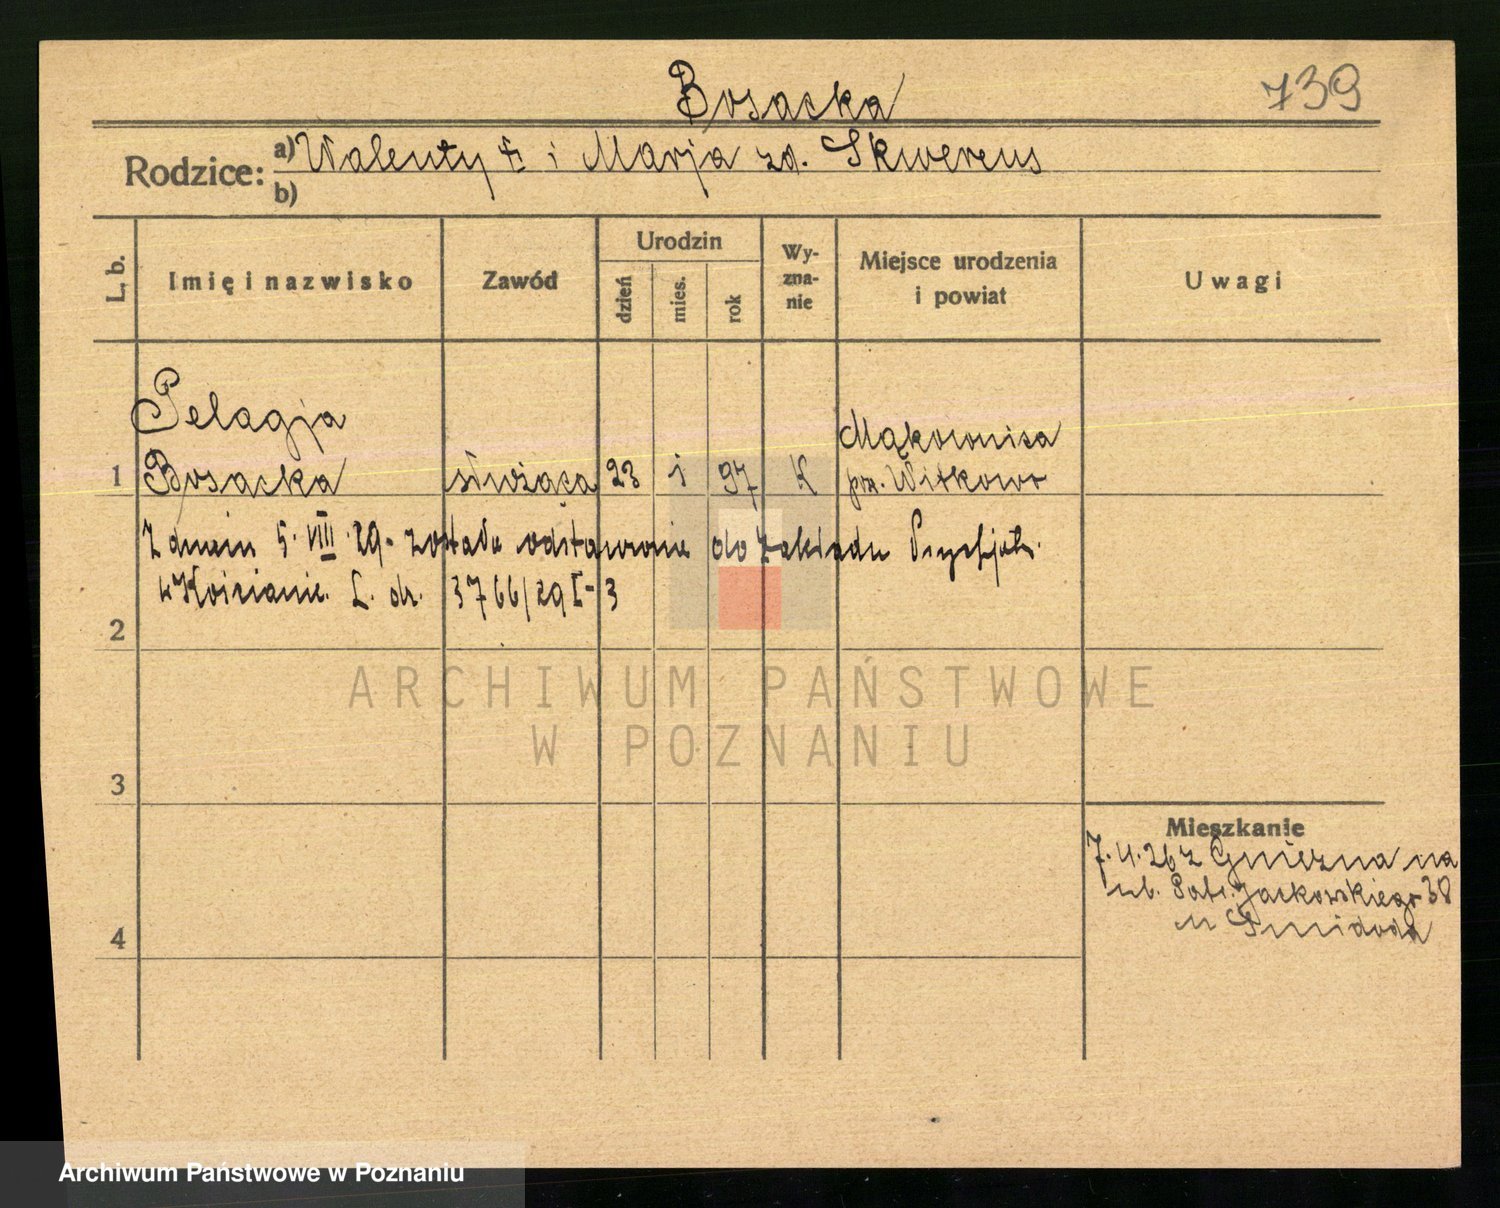 Bosacka
739
Rodzice:
a) Walenty † i Marja zd. Skwereus
b)
L. b.
Imię i nazwisko
Zawód
Urodzin
dzień
mies.
rok
Wy-
zna-
nie
Miejsce urodzenia
i powiat
Uwagi
Pelagja
Mąkownica
1 Bosacka służąca 23 1 97 K pow. Witkowo
Z dniem 5. VIII 29 - została odstawiona do zakładu Psychjatr.
w Kościanie. L. dz. 3766/29 I-3
2
ARCHIWUM PAŃSTWOWE
W POZNANIU
3
Mieszkanie
7. 4. 26 z Gniezna na
ul. Patr. Jackowskiego 38
u
4
Archiwum Państwowe w Poznaniu